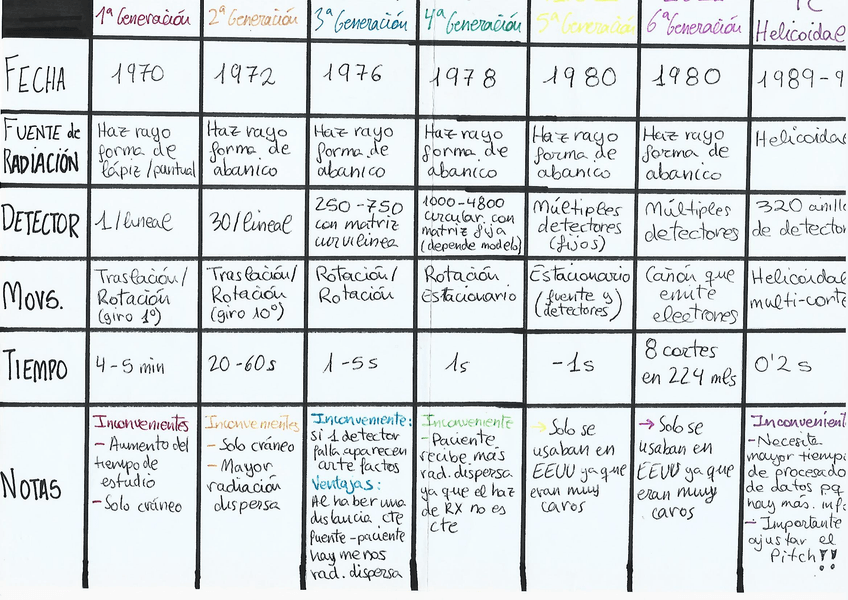 1ª Generación
2ª Generación
3ª Generación
4ª Generación
5ª Generación
6ª Generación
TC
Helicoidal
FECHA
1970
1972
1976
1978
1980
1980
1989-9
FUENTE de
RADIACIÓN
Haz rayo
forma de
lápiz/puntual
Haz rayo
forma de
abanico
Haz rayo
forma de
abanico
Haz rayo
forma de
abanico
Haz rayo
forma de
abanico
Haz rayo
forma de
abanico
Helicoidal
DETECTOR
1/lineal
30/lineal
250-750
con matriz
curvilinea
1000-4800
circular con
matriz fija
(depende modelo)
Múltiples
detectores
(fijos)
Múltiples
detectores
320 anillo
de detector
MOVS.
Traslación/
Rotación
(giro 1º)
Traslación/
Rotación
(giro 10º)
Rotación/
Rotación
Rotación
Estacionario
Estacionario
(fuente y
detectores)
Cañón que
emite
electrones
Helicoidal
multi-corte
TIEMPO
4-5 min
20-60s
1-5s
1s
-1s
8 cortes
en 224 mls
0'2 s
NOTAS
Inconvenientes
- Aumento del
tiempo de
estudio
- Solo cráneo
Inconvenientes
- Solo cráneo
- Mayor
radiación
dispersa
Inconveniente:
si 1 detector
falla aparecen
artefactos
Ventajas:
Al haber una
distancia cte
fuente-paciente
hay menos
rad. dispersa
Inconveniente
- Paciente
recibe más
rad. dispersa
ya que el haz
de RX no es
cte
→ Solo se
usaban en
EEUU ya que
eran muy
caros
→ Solo se
usaban en
EEUU ya que
eran muy
caros
Inconvenient
- Necesita
mayor tiempo
de procesado
de datos pq
hay más. inf.
- Importante
ajustar el
Pitch!!